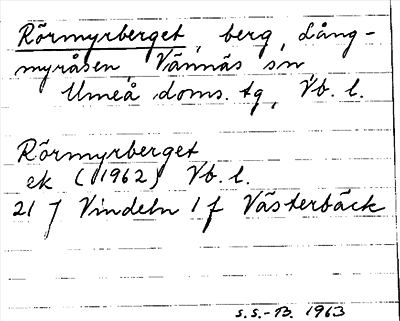 Rörmyrberget, berg, Lång-
myråsen, Vännäs sn
Umeå doms. tg, Vb. l.
Rörmyrberget
ek (1962) Vb. l.
21 J Vindeln 1 f Västerbäck
S.S.-B. 1963